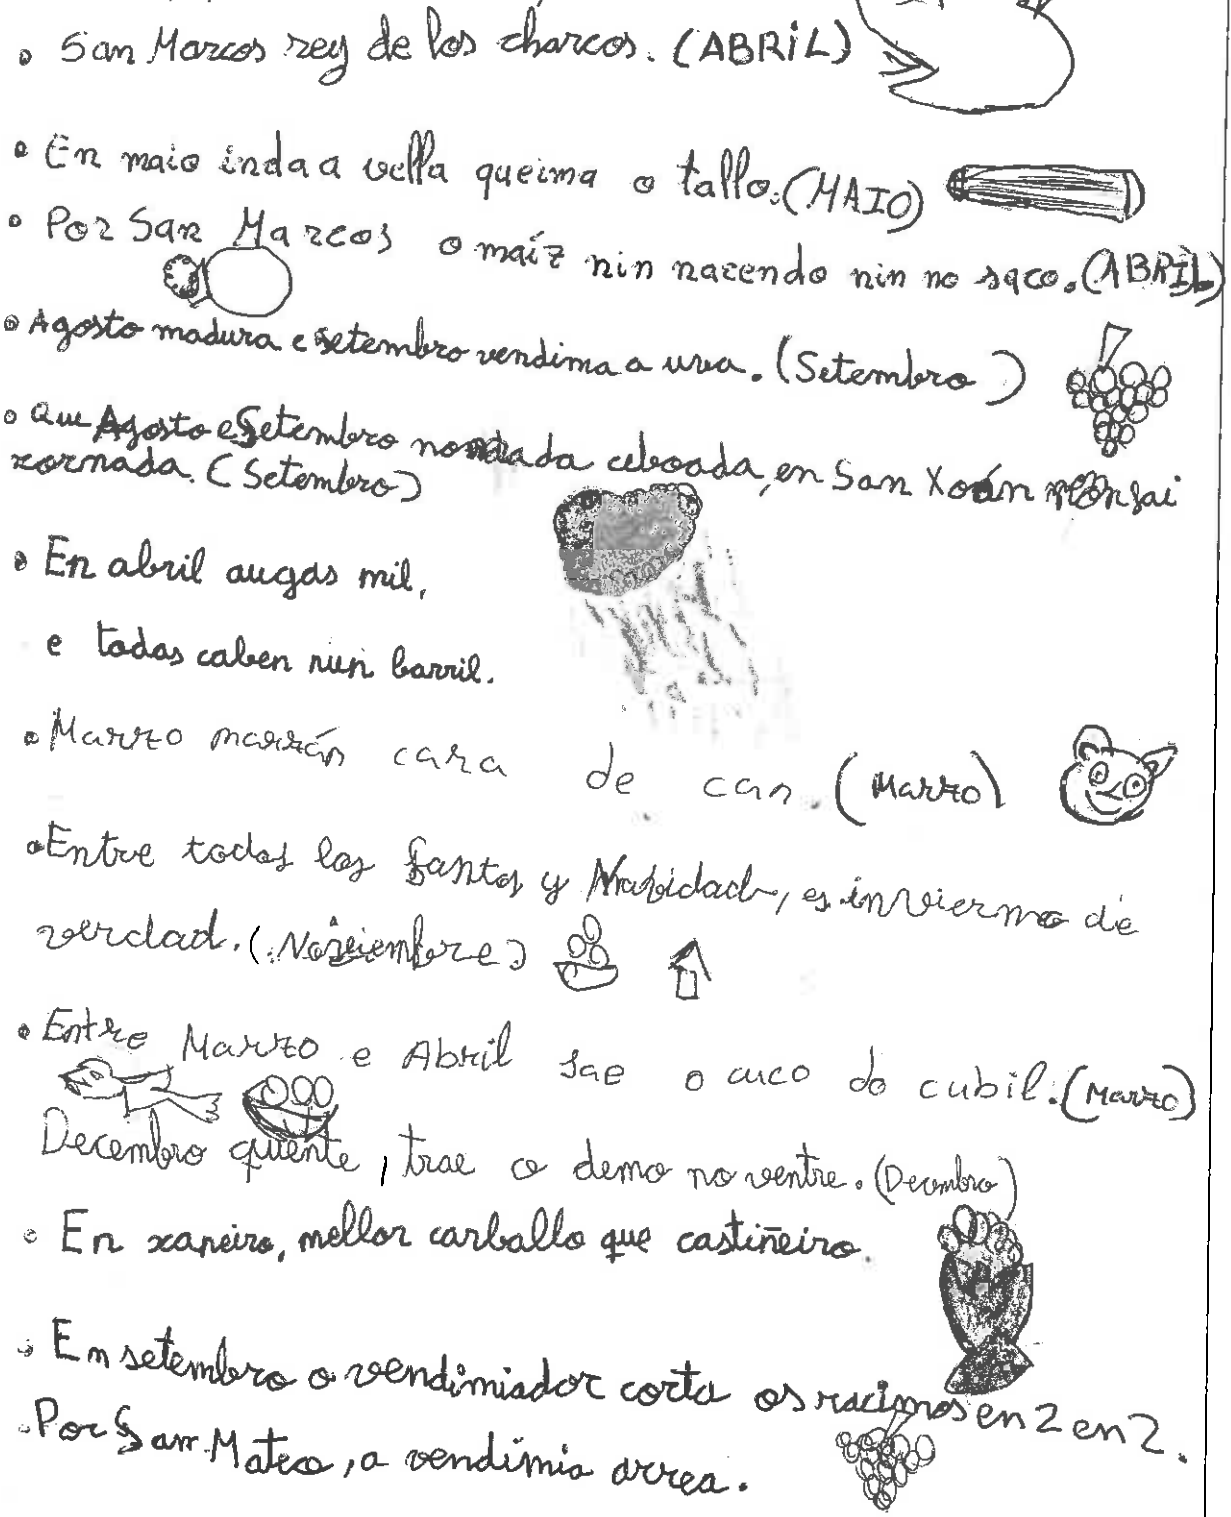 • San Marcos rey de los charcos. (ABRIL)
• En maio inda a vella queima o tallo. (MAIO)
• Por San Marcos o maíz nin nacendo nin no saco. (ABRIL)
• Agosto madura e setembro vendima a uva. (Setembro)
• Que Agosto e Setembro non da ceboada, en San Xoán non sai
xornada. (Setembro)
• En abril augas mil,
e todas caben nun barril.
• Marzo marzán cara de can. (Marzo)
• Entre todos los Santos y Navidad, es invierno de
verdad. (Noviembre)
• Entre Marzo e Abril sae o cuco do cubil. (Marzo)
Decembro quente, trae o demo no ventre. (Decembro)
• En xaneiro, mellor carballo que castiñeiro.
• En setembro o vendimiador corta os racimos en 2 en 2.
• Por San Mateo, a vendimia arrea.